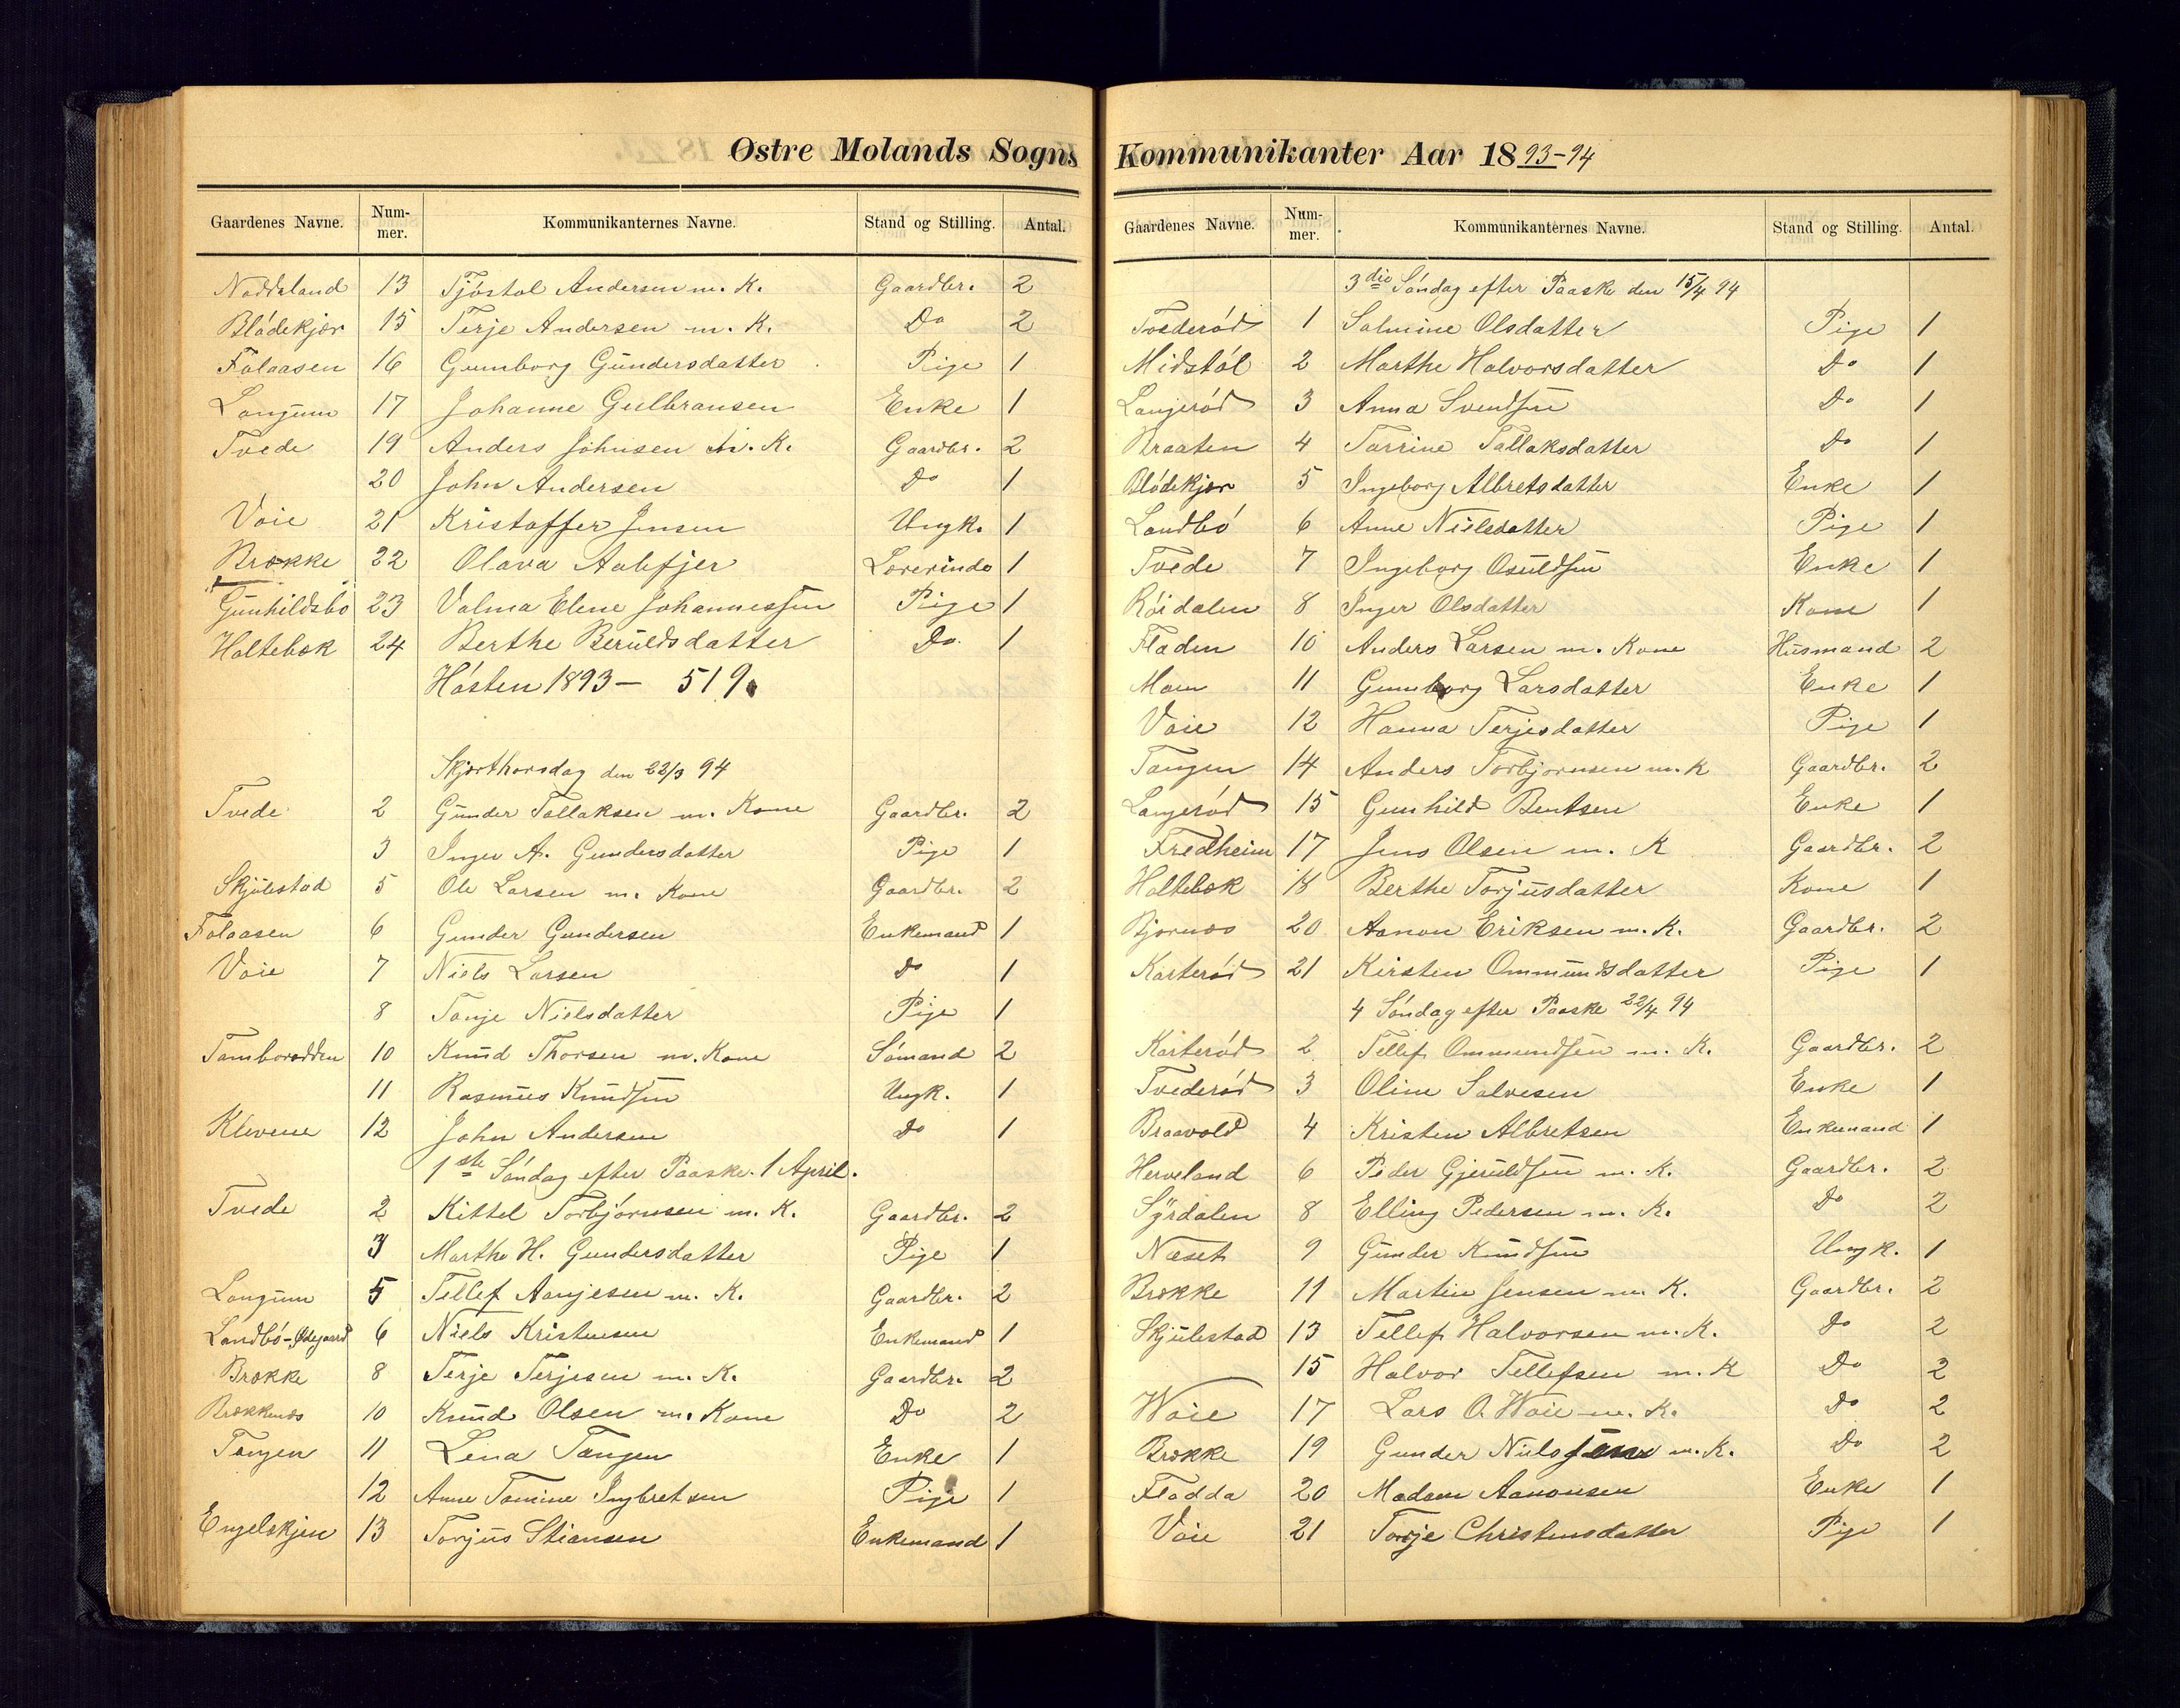 Østre Molands Sogns
Gaardenes Navne. Nummer. Kommunikanternes Navne. Stand og Stilling. Antal.
Noddeland 13 Tjöstol Andersen m. K. Gaardbr. 2
Blödekjær 15 Terje Andersen m. K. Do 2
Folaasen 16 Gunborg Gundersdatter Pige 1
Langum 17 Johanne Gulbransen Enke 1
Tvede 19 Anders Johnsen m. K. Gaardbr. 2
20 John Andersen Do 1
Voie 21 Kristoffer Jensen Ungk. 1
Brække 22 Olava Aalefjer Lærerinde 1
Gunhildsbo 23 Valma Elene Johannessen Pige 1
Holtebæk 24 Berthe Beruldsdatter Do 1
Hösten 1893 – 519.
Skjærthorsdag den 22/3 94
Tvede 2 Gunder Tallaksen m. Kone Gaardbr. 2
3 Inger A. Gundersdatter Pige 1
Skjulestad 5 Ole Larsen m. Kone Gaardbr. 2
Folaasen 6 Gunder Gundersen Enkemand 1
Voie 7 Niels Larsen Do 1
8 Tonje Nielsdatter Pige 1
Tamborodden 10 Knud Thorsen m. Kone Sömand 2
11 Rasmus Knudsen Ungk. 1
Klevene 12 John Andersen Do 1
1ste Söndag efter Paaske. 1 April.
Tvede 2 Kittel Torbjörnsen m. K. Gaardbr. 2
3 Marthe H. Gundersdatter Pige 1
Langum 5 Tellef Aanjesen m. K. Gaardbr. 2
Landbö-Ødegaard 6 Niels Kristensen Enkemand 1
Brække 8 Terje Terjesen m. K. Gaardbr. 2
Brækkenæs 10 Knud Olsen m. Kone Do 2
Tangen 11 Lena Tangen Enke 1
12 Anne Tomine Ingbretsen Pige 1
Engelskjen 13 Torjus Stiansen Enkemand 1
Kommunikanter Aar 1893-94
Gaardenes Navne. Nummer. Kommunikanternes Navne. Stand og Stilling. Antal.
3die Söndag efter Paaske den 15/4 94
Tvederöd 1 Salmine Olsdatter Pige 1
Midstöl 2 Marthe Halvorsdatter Do 1
Langeröd 3 Anna Svendsen Do 1
Braaten 4 Tarrine Tallaksdatter Do 1
Blödekjær 5 Ingeborg Albretsdatter Enke 1
Landbö 6 Anne Nielsdatter Pige 1
Tvede 7 Ingeborg Osuldsen Enke 1
Röidalen 8 Inger Olsdatter Kone 1
Fladen 10 Anders Larsen m. Kone Husmand 2
Moen 11 Gunborg Larsdatter Enke 1
Voie 12 Hanna Terjesdatter Pige 1
Tangen 14 Anders Torbjörnsen m. K Gaardbr. 2
Langeröd 15 Gunhild Bentsen Enke 1
Fredheim 17 Jens Olsen m. K Gaardbr. 2
Holtebæk 18 Berthe Torjusdatter Kone 1
Bjornæs 20 Aanon Eriksen m. K. Gaardbr. 2
Karteröd 21 Kirsten Ommundsdatter Pige 1
4 Söndag efter Paaske 22/4 94
Karteröd 2 Tellef Ommundsen m. K. Gaardbr. 2
Tvederöd 3 Oline Salvesen Enke 1
Braavold 4 Kristen Albretsen Enkemand 1
Herveland 6 Peder Gjeruldsen m. K. Gaardbr. 2
Syrdalen 8 Elling Pedersen m. K. Do 2
Næset 9 Gunder Knudsen Ungk. 1
Brække 11 Martin Jensen m. K. Gaardbr. 2
Skjulestad 13 Tellef Halvorsen m. K. Do 2
15 Halvor Tellefsen m. K Do 2
Woie 17 Lars O. Woie m. K. Do 2
Brække 19 Gunder Nielssen m. K. Do 2
Flodda 20 Madam Aanonsen Enke 1
Voie 21 Torje Christensdatter Pige 1